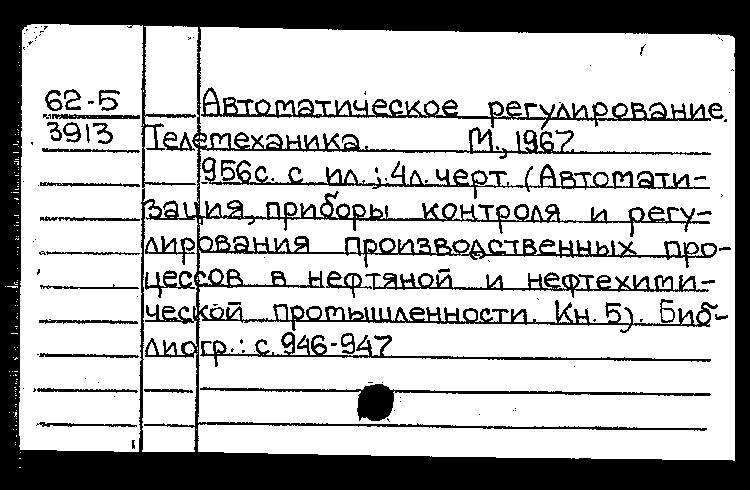 62-5 Автоматическое регулирование.
3913 Телемеханика. М., 1967
956с. с ил.; 4л. черт. (Автомати-
зация, приборы контроля и регу-
лирования производственных про-
цессов в нефтяной и нефтехими-
ческой промышленности. Кн. 5). Биб-
лиогр.: с. 946-947